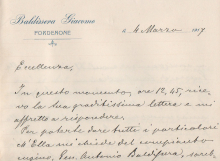 Baldissera Giacomo
PORDENONE
4 Marzo 1917
Eccellenza,
In questo momento, ore 12,45, rice-
vo la sua graditissima lettera e mi
affretto a rispondere.
Per poterle dare tutti i particolari
ch'Ella mi chiede del compianto
Gen. Antonio Baldissera, sareb-